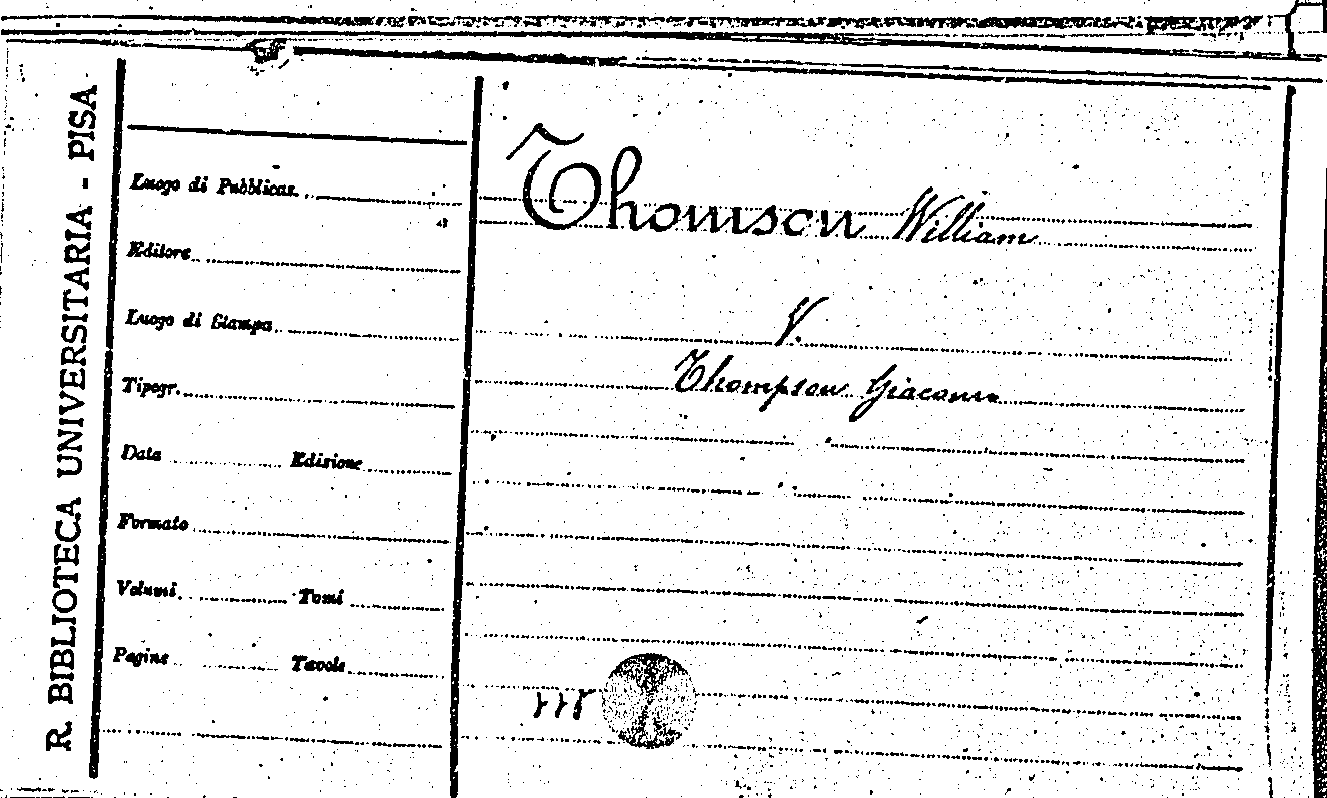 R. BIBLIOTECA UNIVERSITARIA - PISA
Luogo di Pubblicaz.
Editore
Luogo di Stampa
Tipogr.
Data Edizione
Formato
Volumi Tomi
Pagine Tavole
Thomson William
V.
Thompson Giacomo